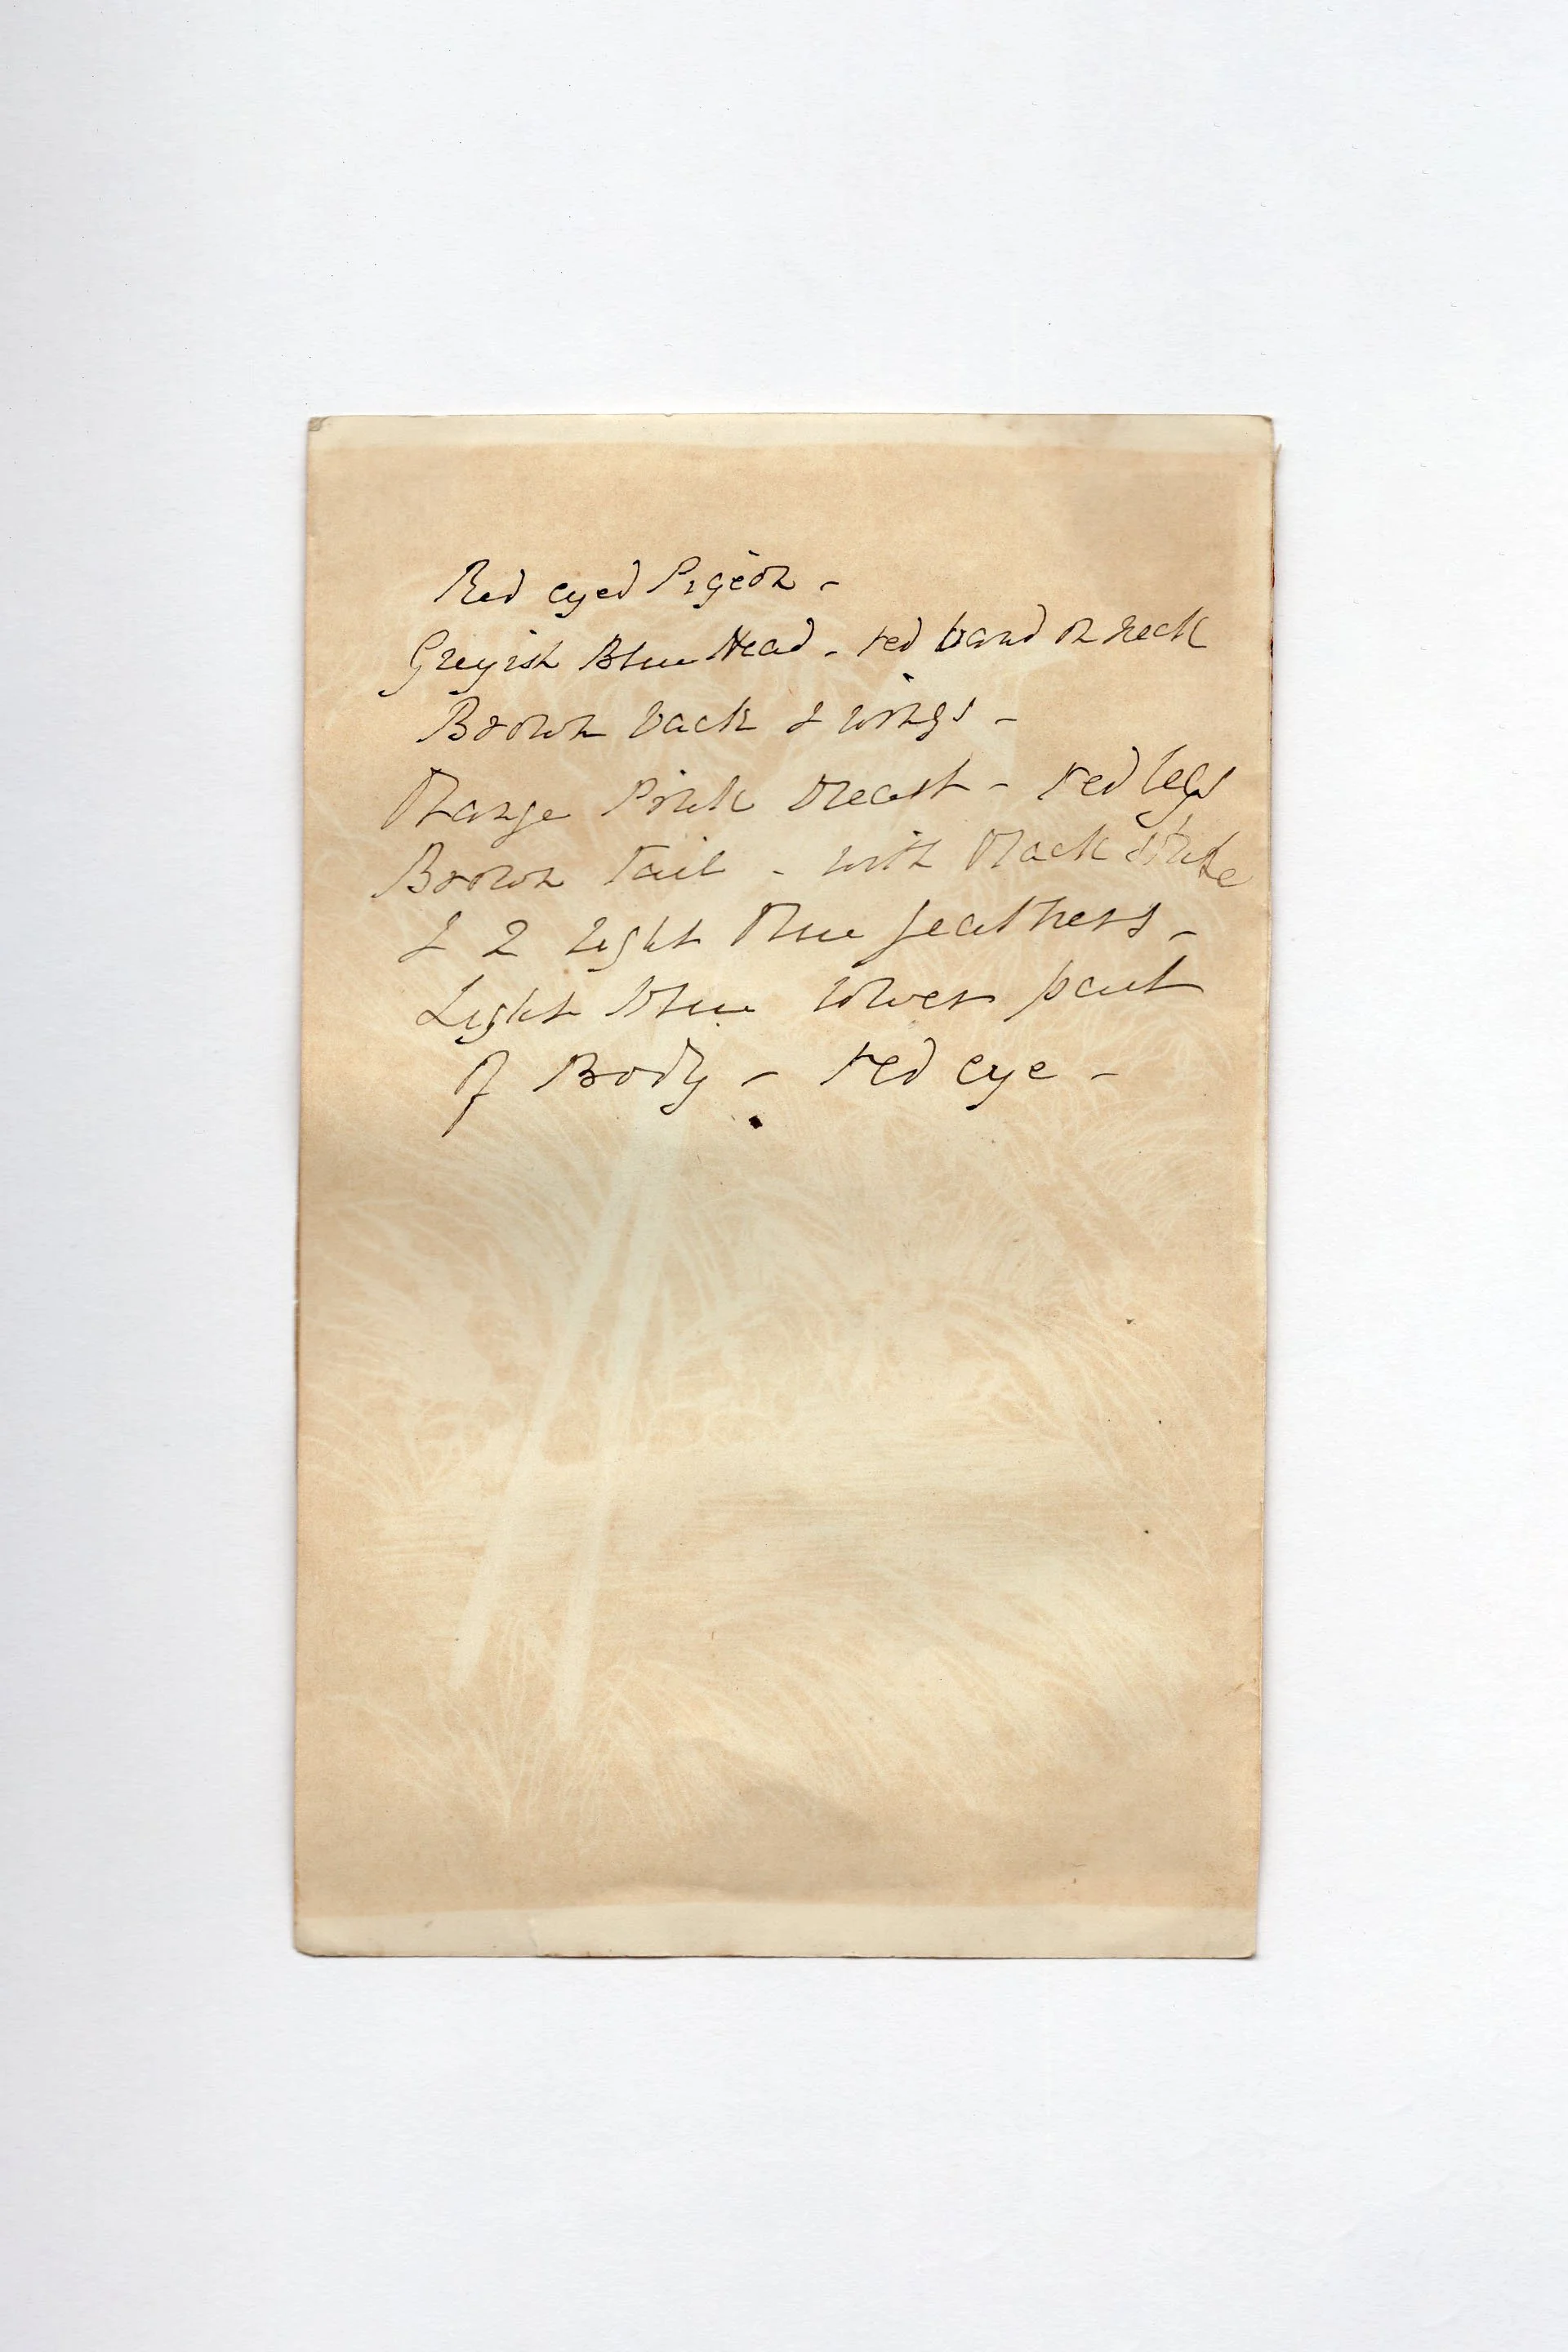 Red eyed Pigeon -
Greyish Blue Head - red band on neck
Brown back & wings -
Orange Pink breast - red legs
Brown Tail - with black stripe
& 2 light blue feathers -
Light blue lower part
of Body - red eye -